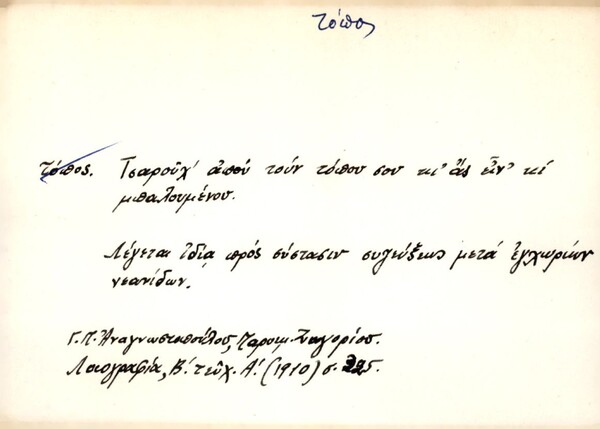 τόπος
τόπος. Τσαροῦχ' ἀπού τούν τόπου σου κι' ἄς εἶν' κί
μπαλουμένου.
Λέγεται ἰδίᾳ πρός σύστασιν συζεύξεως μετά ἐγχωρίων
νεανίδων.
Γ. Π. Ἀναγνωστοπούλος, Παροιμ. Ζαγορίου.
Λαογραφία, Β'. τεῦχ. Α'. (1910) σ. 225.